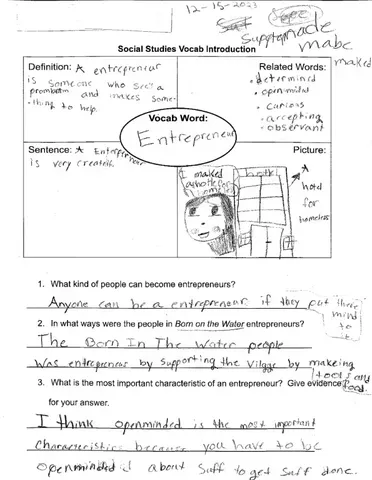 12-15-2023
made
mabe
maked
Social Studies Vocab Introduction
Definition: A entrepreneur
is someone who see's a
prombram and makes some-
thing to help.
Related Words:
• determined
• openmided
• curious
• accepting
• observant
Vocab Word:
Entrepreneur
Sentence: A Entreprenour
is very createive.
Picture:
I maked
a hotle for
homeless
hotle
A
hotel
for
homeless
1. What kind of people can become entrepreneurs?
Anyone can be a entrepreneur if they put there
mind
to
it
2. In what ways were the people in Born on the Water entrepreneurs?
The Born In The Water people
was entrepreneurs by supporting the Vilage by makeing
tools and
food.
3. What is the most important characteristic of an entrepreneur? Give evidence
for your answer.
I think openminded is the most important
characteristics because you have to be
openminded about Suff to get suff done.